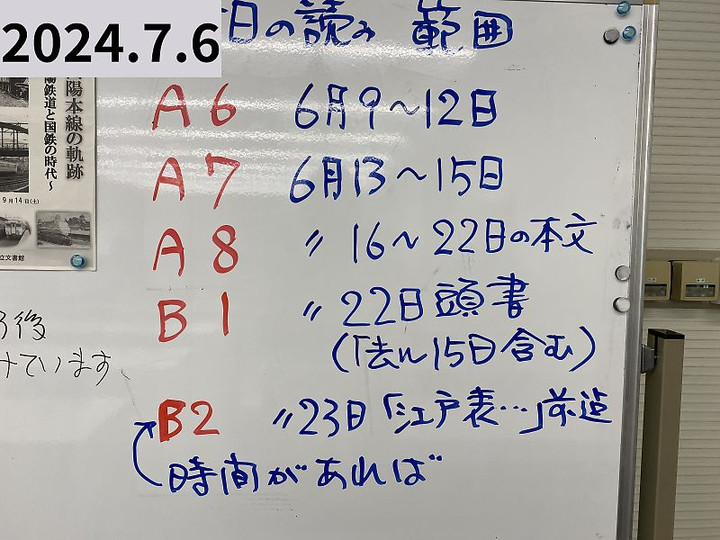 2024.7.6
日の読み 範囲
A6 6月9～12日
A7 6月13～15日
A8 〃 16～22日の本文
B1 〃 22日頭書
(「去ル15日含む)
B2 〃23日「江戸表…」前迄
時間があれば
陽本線の軌跡
陽鉄道と国鉄の時代～
9月14日(土)
立文書館
後
けています